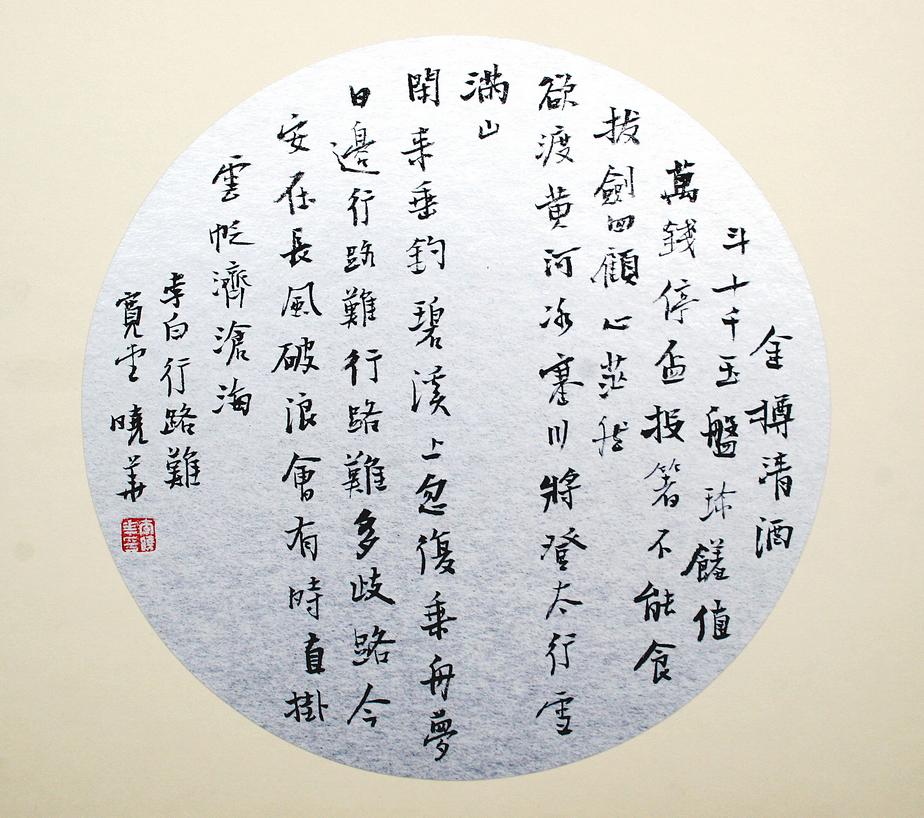 金樽清酒
斗十千玉盤珎饈值
萬錢停盃投箸不能食
拔劍四顧心茫然
欲渡黄河冰塞川將登太行雪
滿山
閑来垂釣碧溪上忽復乘舟夢
日邊行路難行路難多歧路今
安在長風破浪會有時直掛
雲帆濟滄海
李白行路難
寬堂曉華